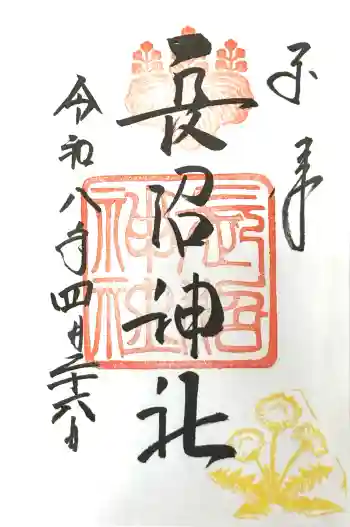 奉拝
長沼神社
令和八年四月二十六日
長沼
神社